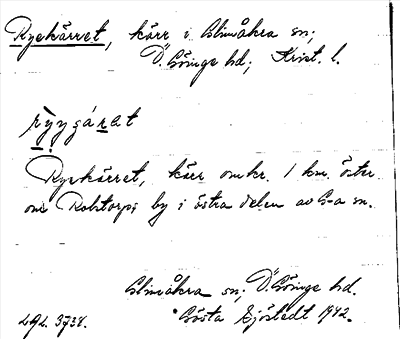 Ryekärret, kärr i Glimåkra sn;
Ö. Göinge hd; Krist. l.
Ryekärret, kärr omkr. 1 km. öster
om Roktorps by i östra delen av G-a sn.
Glimåkra sn; Ö. Göinge hd.
Gösta Sjöstedt 1942.
LAL. 3738.